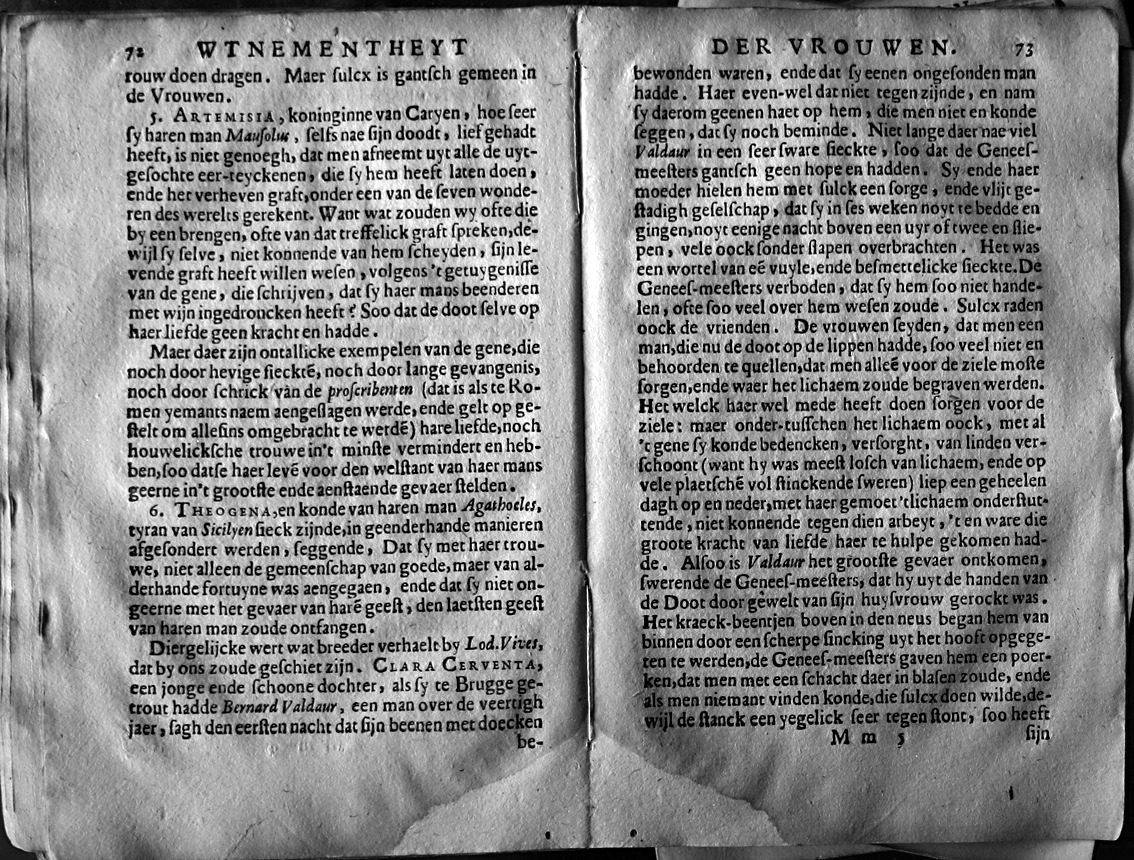 72 WTNEMENTHEYT
rouw doen dragen. Maer ſulcx is gantſch gemeen in
de Vrouwen.
5. ARTEMISIA, koninginne van Caryen, hoe ſeer
ſy haren man Mauſolus, ſelfs nae ſijn doodt, lief gehadt
heeft, is niet genoegh, dat men afneemt uyt alle de uyt-
geſochte eer-teyckenen, die ſy hem heeft laten doen,
ende het verheven graft, onder een van de ſeven wonde-
ren des werelts gerekent. Want wat zouden wy ofte die
by een brengen, ofte van dat treffelick graft ſpreken, de-
wijl ſy ſelve, niet konnende van hem ſcheyden, ſijn le-
vende graft heeft willen weſen, volgens 't getuygeniſſe
van de gene, die ſchrijven, dat ſy haer mans beenderen
met wijn ingedroncken heeft? Soo dat de doot ſelve op
haer liefde geen kracht en hadde.
Maer daer zijn ontallicke exempelen van de gene, die
noch door hevige ſiecktē, noch door lange gevangenis,
noch door ſchrick van de proſcribenten (dat is als te Ro-
men yemants naem aengeſlagen werde, ende gelt op ge-
ſtelt om alleſins omgebracht te werdē) hare liefde, noch
houwelickſche trouwe in't minſte vermindert en heb-
ben, ſoo datſe haer levē voor den welſtant van haer mans
geerne in't grootſte ende aenſtaende gevaer ſtelden.
6. THEOGENA, en konde van haren man Agathocles,
tyran van Sicilyen ſieck zijnde, in geenderhande manieren
afgeſondert werden, ſeggende, Dat ſy met haer trou-
we, niet alleen de gemeenſchap van goede, maer van al-
derhande fortuyne was aengegaen, ende dat ſy niet on-
geerne met het gevaer van harē geeſt, den laetſten geeſt
van haren man zoude ontfangen.
Diergelijcke wert wat breeder verhaelt by Lod. Vives,
dat by ons zoude geſchiet zijn. CLARA CERVENTA,
een jonge ende ſchoone dochter, als ſy te Brugge ge-
trout hadde Bernard Valdaur, een man over de veertigh
jaer, ſagh den eerſten nacht dat ſijn beenen met doecken
be-
DER VROUWEN. 73
bewonden waren, ende dat ſy eenen ongeſonden man
hadde. Haer even-wel dat niet tegen zijnde, en nam
ſy daerom geenen haet op hem, die men niet en konde
ſeggen, dat ſy noch beminde. Niet lange daer nae viel
Valdaur in een ſeer ſware ſieckte, ſoo dat de Geneeſ-
meeſters gantſch geen hope en hadden. Sy ende haer
moeder hielen hem met ſulck een ſorge, ende vlijt ge-
ſtadigh geſelſchap, dat ſy in ſes weken noyt te bedde en
gingen, noyt eenige nacht boven een uyr of twee en ſlie-
pen, vele oock ſonder ſlapen overbrachten. Het was
een wortel van eē vuyle, ende beſmettelicke ſieckte. De
Geneeſ-meeſters verboden, dat ſy hem ſoo niet hande-
len, ofte ſoo veel over hem weſen zoude. Sulcx raden
oock de vrienden. De vrouwen ſeyden, dat men een
man, die nu de doot op de lippen hadde, ſoo veel niet en
behoorden te quellen, dat men alleē voor de ziele moſte
ſorgen, ende waer het lichaem zoude begraven werden.
Het welck haer wel mede heeft doen ſorgen voor de
ziele: maer onder-tuſſchen het lichaem oock, met al
't gene ſy konde bedencken, verſorght, van linden ver-
ſchoont (want hy was meeſt loſch van lichaem, ende op
vele plaetſchē vol ſtinckende ſweren) liep een geheelen
dagh op en neder, met haer gemoet 'tlichaem onderſtut-
tende, niet konnende tegen dien arbeyt, 't en ware die
groote kracht van liefde haer te hulpe gekomen had-
de. Alſoo is Valdaur het grootſte gevaer ontkomen,
ſwerende de Geneeſ-meeſters, dat hy uyt de handen van
de Doot door gewelt van ſijn huyſvrouw gerockt was.
Het kraeck-beentjen boven in den neus began hem van
binnen door een ſcherpe ſincking uyt het hooft opgege-
ten te werden, de Geneeſ-meeſters gaven hem een poer-
ken, dat men met een ſchacht daer in blaſen zoude, ende
als men niemant vinden konde, die ſulcx doen wilde, de-
wijl de ſtanck een yegelick ſeer tegen ſtont, ſoo heeft
M m 5 ſijn